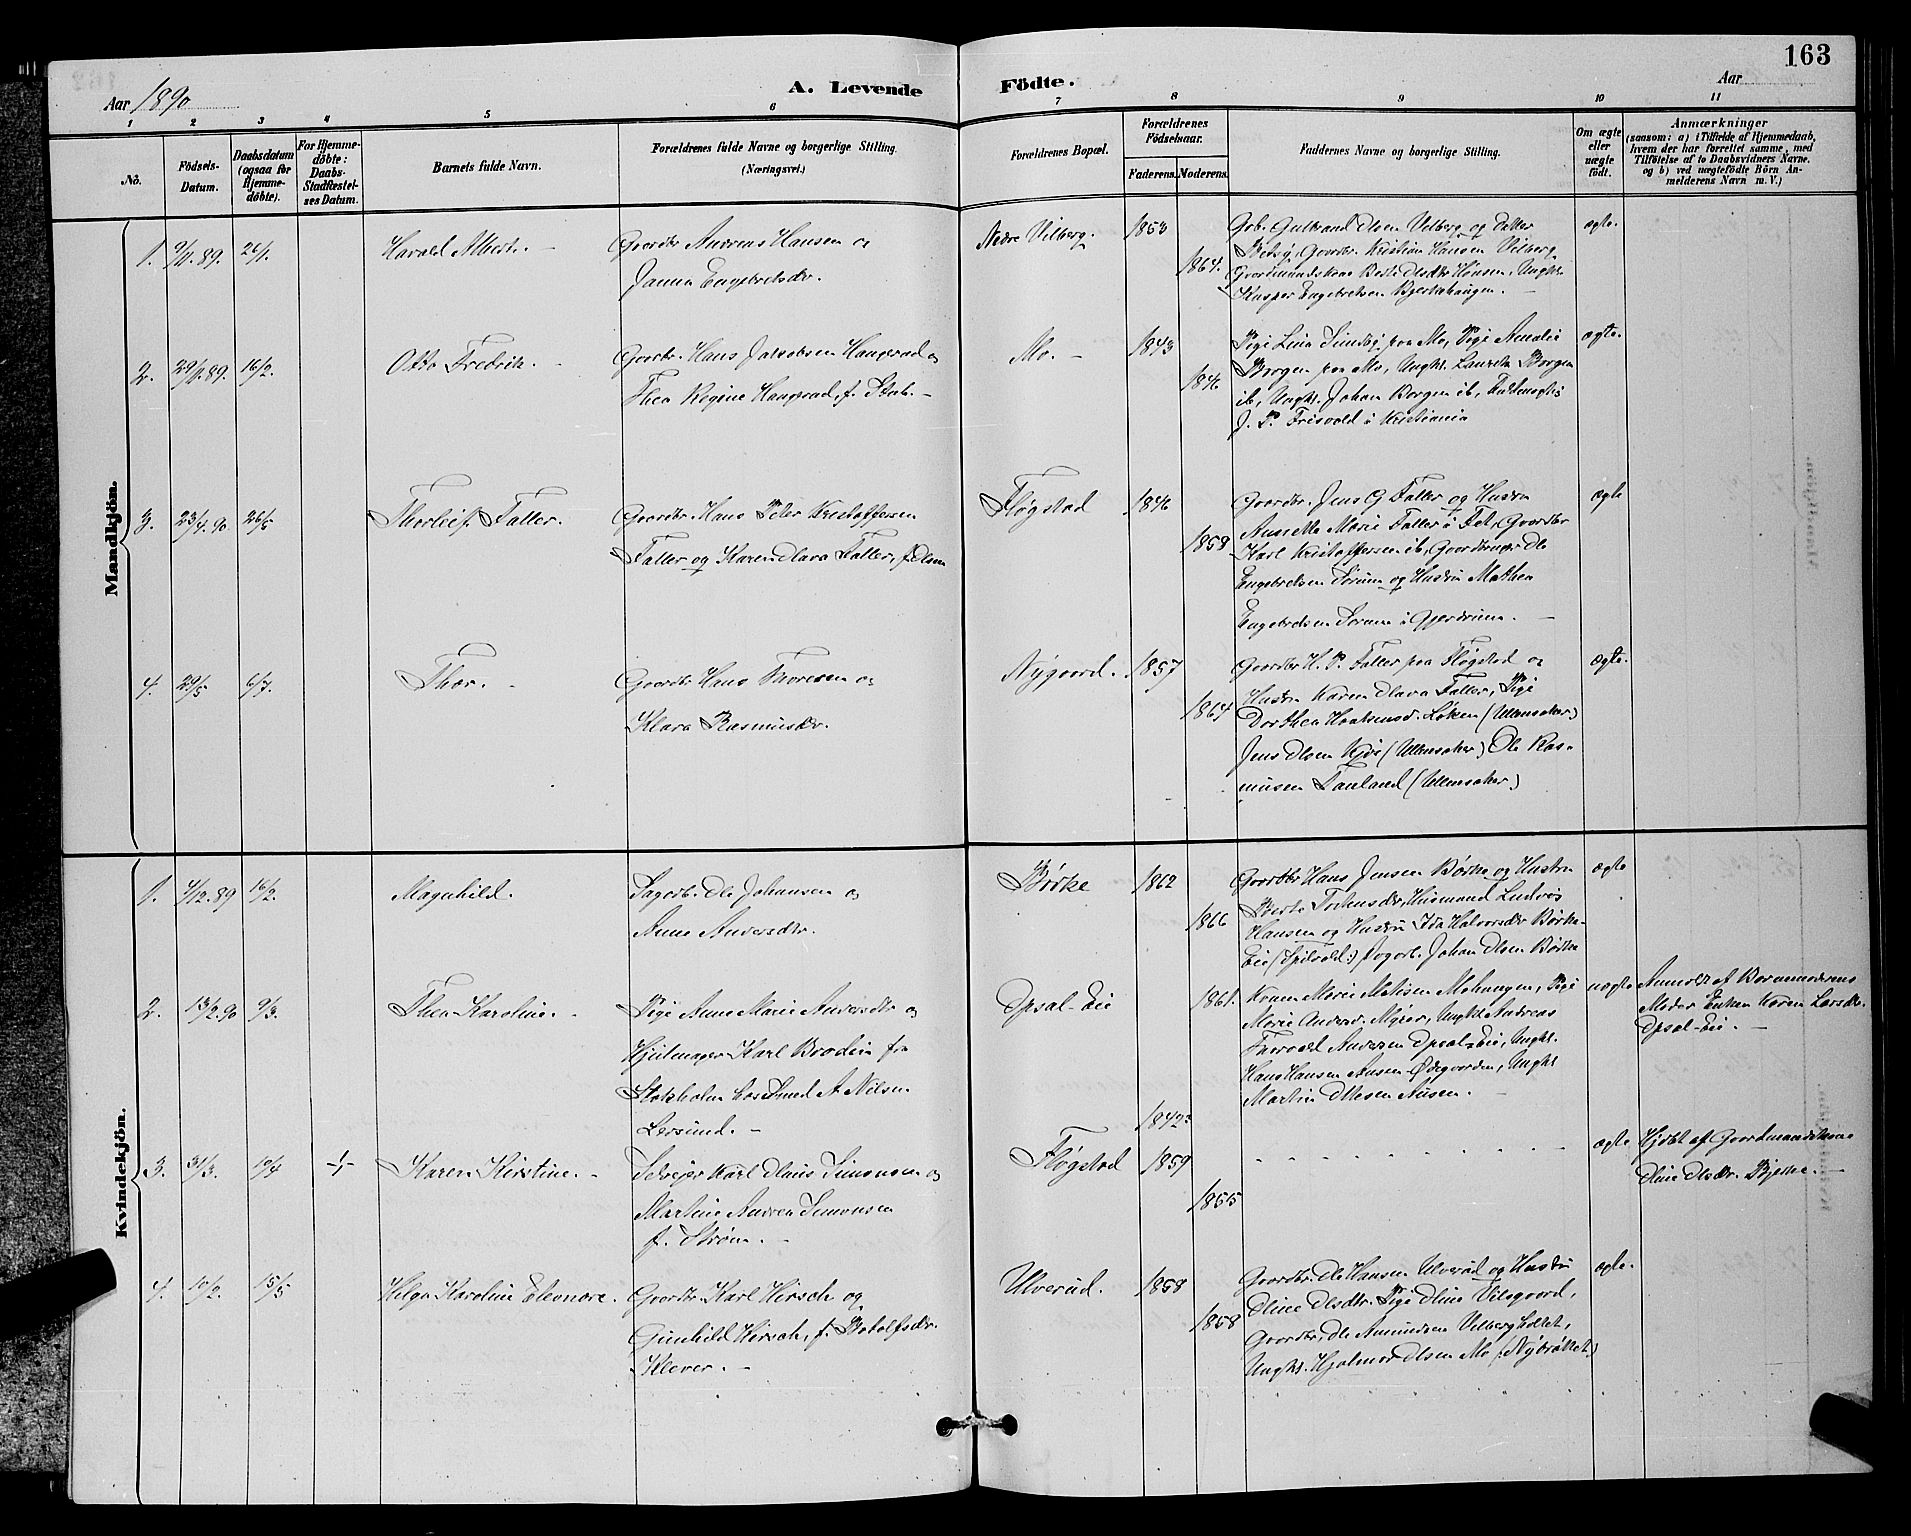 163
Aar 1890
A. Levende Födte.
Aar
1 2 3 4 5 6 7 8 9 10 11
No.
Födsels-Datum.
Daabsdatum (ogsaa for Hjemme-døbte).
For Hjemme-døbte: Daabs-Stadfæstel-ses Datum.
Barnets fulde Navn.
Forældrenes fulde Navne og borgerlige Stilling. (Næringsvei.)
Forældrenes Bopæl.
Forældrenes Födselsaar.
Faderens. Moderens.
Faddernes Navne og borgerlige Stilling.
Om ægte eller uægte födt.
Anmærkninger
(saasom: a) i Tilfælde af Hjemmedaab, hvem der har forrettet samme, med Tilföielse af to Daabsvidners Navne, og b) ved uægtefödte Börn An-melderens Navn m. V.)
Mandkjön.
1. 9/11 89. 26/1. Harald Albert. Gaardbr Andreas Hansen og
Janna Engebretsdr.
Nedre Vilberg. 1853 1864.
Gbr. Gulbrand Olsen Vilberg og Datter
Betsy, Gaardbr. Kristian Hansen Vilberg
Gaardmandskone Berte Olsdtr Hansen, Ungk.
Kasper Engebretsen Bjertnhaugen.
ægte.
2. 29/11 89. 16/2. Otto Fredrik. Gaardbr. Hans Jakobsen Haugerad og
Thea Regine Haugerad, f. Stab.
Mo. 1843 1846
Pige Lina Sundby paa Mo, Pige Amalie
Borgen paa Mo, Ungk. Laurits Borgen
ib, Ungk. Johan Borgen ib,
J. P. Frisvold i Kristiania
ægte.
3. 23/4 90 26/5 Thorleif Faller. Gaardbr. Hans Peter Kristoffersen
Faller og Karen Olava Faller, f. Olsen
Fløgstad 1846 1859
Gaardbr. Jens G Faller og Hustru
Annette Marie Faller i Fet, Gaardbr
Karl Kristoffersen ib, Gaardbruger Ole
Engebretsen Sørum og Hustru Mathea
Engebretsen Sørum i Gjerdrum.
ægte
4. 29/5 6/7. Thor. Gaardbr Hans Thoresen og
Klara Rasmusdr.
Nygaard. 1857 1864
Gaardbr H. P. Faller paa Fløgstad og
Hustru Karen Olava Faller, Pige
Dorthea Haakensd. Løken (Ullensaker)
Jens Olsen Kjos (Ullensaker) Ole Ras-
musen Tanland (Ullensaker)
ægte.
Kvindekjön.
1. 4/12 89 16/2. Magnhild. Sagarb. Ole Johansen og
Anne Andersdtr.
Børke 1862 1866
Gaardbr Hans Jensen Børke og Hustru
Berte Torkensdr, Husmand Ludvig
Hansen og Hustru Ida Halvorsdtr Børke-
Eie Sagarb. Johan Olsen Børke
ægte
2. 13/2 90 9/3. Thea Karoline. Pige Anne Marie Andersdtr og
Hjulmager Karl Brodin fra
Stokholm hos Smed A Nilsen
Lersund.
Opsal-Eie 1861. 1842?
Konen Marie Matisen Mohaugen, Pige
Marie Andersd. Myrer, Ungk. Andreas
Thorvald Andersen Opsal-Eie, Ungk.
Hans Hansen Ausen Ødegaarden, Ungk
Martin Ottesen Ausen.
uægte
Anmeldt af Barnemoderens
Moder Enken Karen Larsdtr.
Opsal-Eie.
3. 31/3. 19/4 Karen Kirstine. Selveier Karl Olaus Simonsen og
Martine Andrea Simonsen
f. Strøm.
Fløgstad 1859 1855
ægte
Hjdbt af Gaardmandskone
Oline Olsdtr. Bjerke.
4. 10/2. 15/5 Helga Karoline Eleonore. Gaardbr. Karl Hirsch og
Gunhild Hirsch, f. Botolfsdr.
Klever.
Ulverud. 1858 1858
Gaardbr. Ole Hansen Ulverud og Hustru
Oline Olsdtr. Pige Oline Vilsgaard,
Gaardbr. Ole Amundsen Vilberg
Ungk. Hjalmar Olsen Mo (Nybrottet)
ægte.